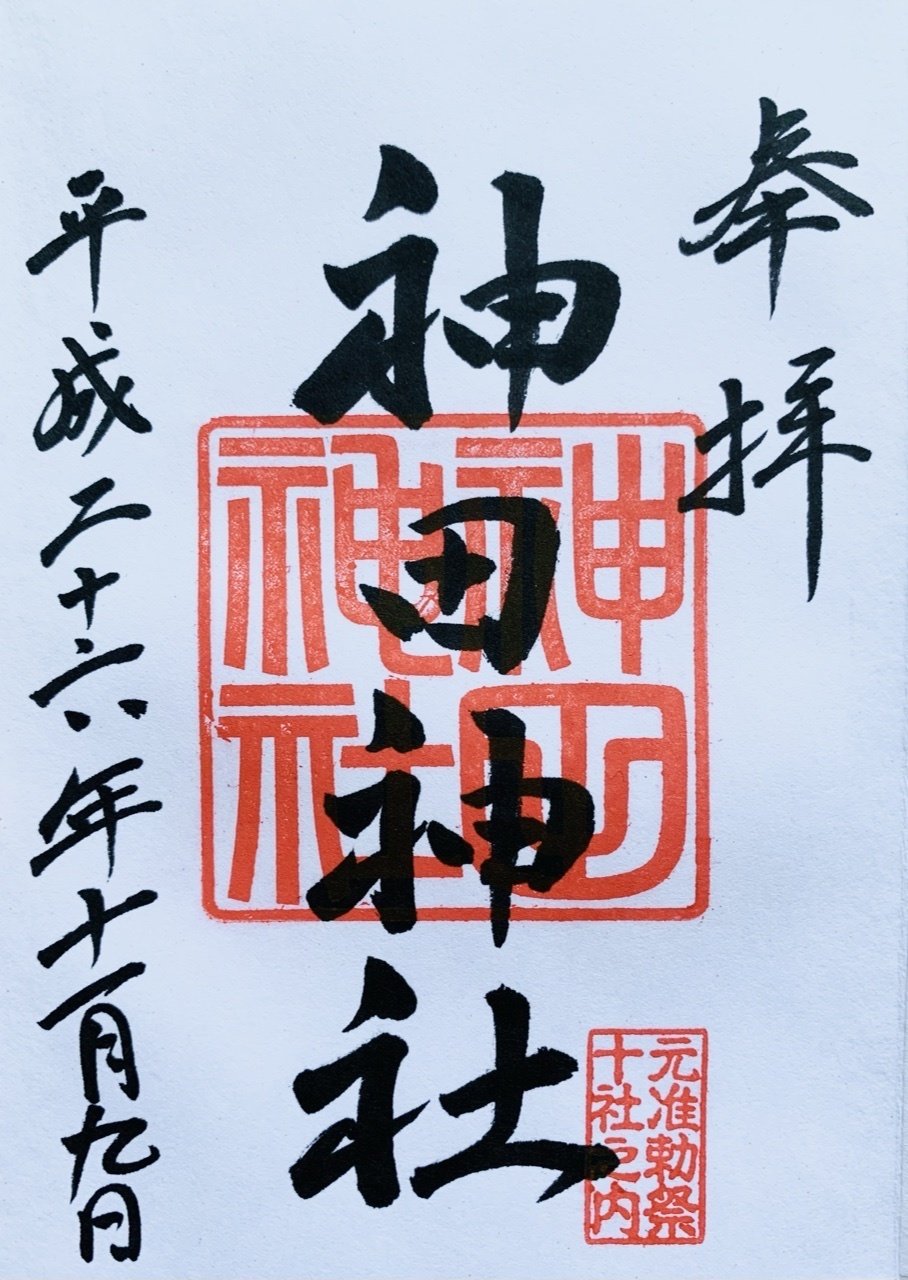 奉拝
神田神社
神田神社
元准勅祭
十社之内
平成二十六年十一月九日